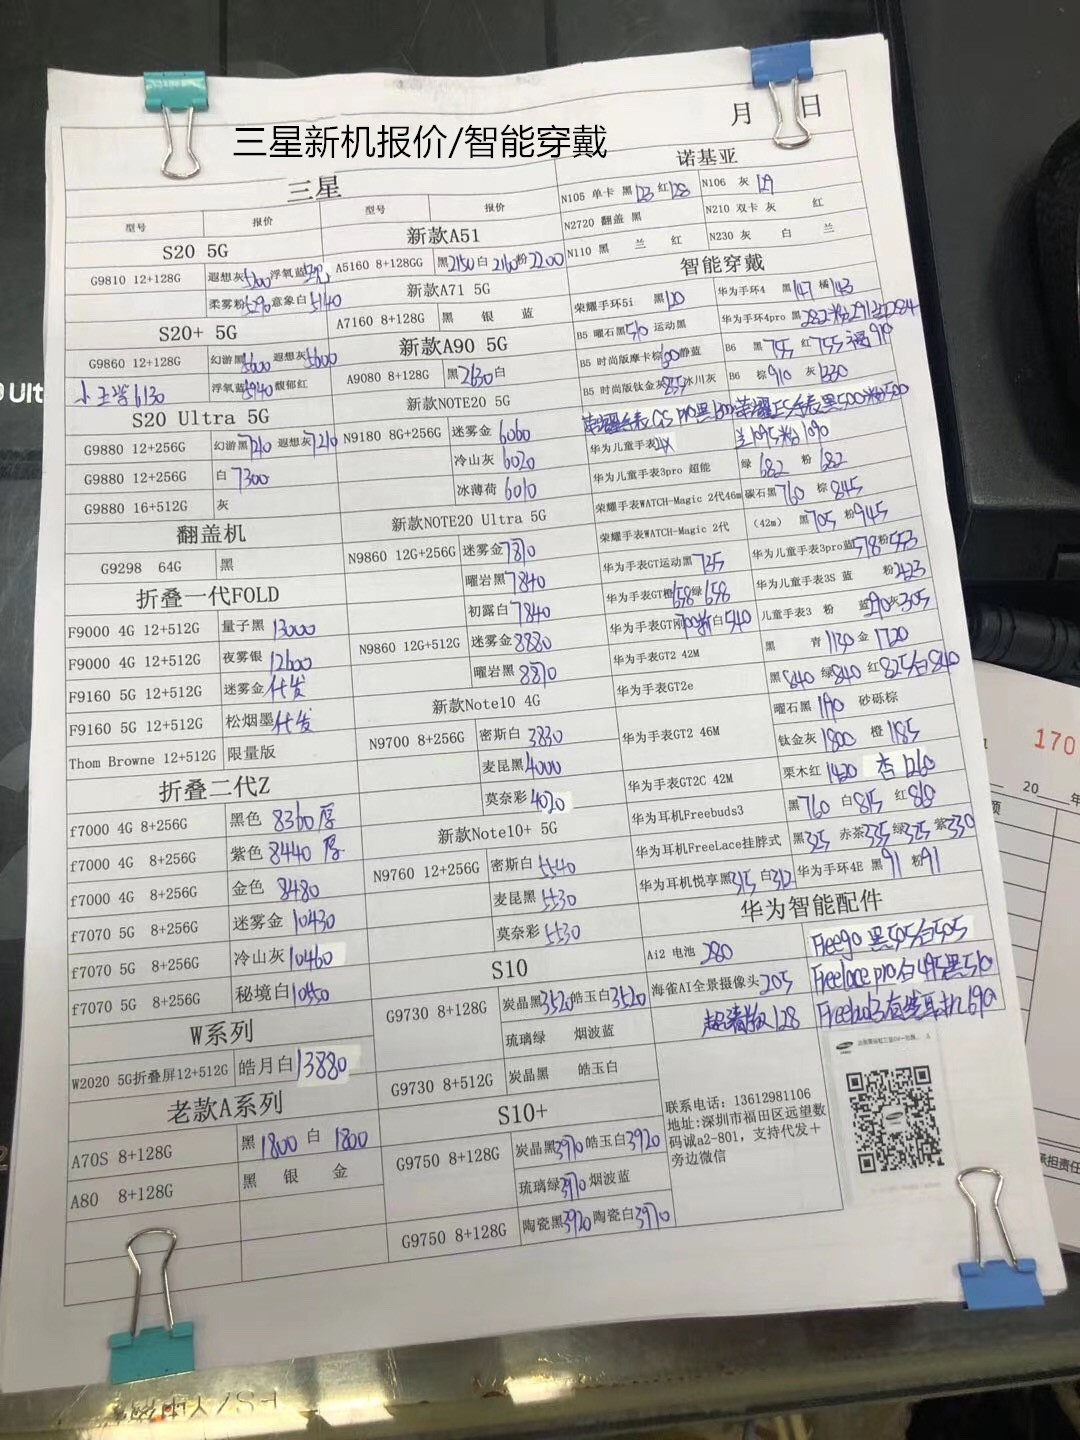 月 日
三星新机报价/智能穿戴
三星
型号 报价 型号 报价
S20 5G
G9810 12+128G 遐想灰5200 浮氧蓝
柔雾粉5290 意象白5140
S20+ 5G
G9860 12+128G 幻游黑5600 遐想灰5600
6130 浮氧蓝5940 馥郁红
S20 Ultra 5G
G9880 12+256G 幻游黑7210 遐想灰7210
G9880 12+256G 白 7300
G9880 16+512G 灰
翻盖机
G9298 64G 黑
折叠一代FOLD
F9000 4G 12+512G 量子黑 13000
F9000 4G 12+512G 夜雾银 12600
F9160 5G 12+512G 迷雾金 代发
F9160 5G 12+512G 松烟墨 代发
Thom Browne 12+512G 限量版
折叠二代Z
f7000 4G 8+256G 黑色 8360厚
f7000 4G 8+256G 紫色 8440厚
f7000 4G 8+256G 金色 8480
f7070 5G 8+256G 迷雾金 10430
f7070 5G 8+256G 冷山灰 10460
f7070 5G 8+256G 秘境白 10550
W系列
W2020 5G折叠屏12+512G 皓月白 13880
老款A系列
A70S 8+128G 黑 1800 白 1800
A80 8+128G 黑 银 金
新款A51
A5160 8+128GG 黑2150 白2160 粉2200
新款A71 5G
A7160 8+128G 黑 银 蓝
新款A90 5G
A9080 8+128G 黑2630 白
新款NOTE20 5G
N9180 8G+256G 迷雾金 6060
冷山灰 6020
冰薄荷 6010
新款NOTE20 Ultra 5G
N9860 12G+256G 迷雾金 7870
曜岩黑 7840
初露白 7840
N9860 12G+512G 迷雾金 8880
曜岩黑 8870
新款Note10 4G
N9700 8+256G 密斯白 3830
麦昆黑 4000
莫奈彩 4020
新款Note10+ 5G
N9760 12+256G 密斯白 5540
麦昆黑 5530
莫奈彩 5530
S10
G9730 8+128G 炭晶黑3520 皓玉白3520
琉璃绿 烟波蓝
G9730 8+512G 炭晶黑 皓玉白
S10+
G9750 8+128G 炭晶黑3970 皓玉白3920
琉璃绿3970 烟波蓝
G9750 8+128G 陶瓷黑3920 陶瓷白3970
诺基亚
N105 单卡 黑123 红128 N106 灰 129
N2720 翻盖 黑 N210 双卡 灰 红
N110 黑 兰 红 N230 灰 白 兰
智能穿戴
荣耀手环5i 黑120 华为手环4 黑147 橘143
B5 曜石黑510 运动黑 华为手环4pro 黑282 粉291 红284
B5 时尚版摩卡棕600 静蓝 B6 黑755 红755 福910
B5 时尚版钛金灰835 冰川灰 B6 棕910 灰1330
华为儿童手表4X 兰1095 粉1090
华为儿童手表3pro 超能 绿 682 粉 682
荣耀手表WATCH-Magic 2代46m 碳石黑760 棕 845
荣耀手表WATCH-Magic 2代 (42m) 黑705 粉945
华为手表GT运动黑735 华为儿童手表3pro蓝578 粉553
华为手表GT橙658 绿658 华为儿童手表3S 蓝 粉423
华为手表GT 白540 儿童手表3 粉 蓝290 灰305
华为手表GT2 42M 黑 青1130 金1720
华为手表GT2e 黑840 绿840 红825 白840
华为手表GT2 46M 曜石黑1190 砂砾棕
钛金灰1800 橙1185
华为手表GT2C 42M 栗木红1420 杏1260
华为耳机Freebuds3 黑760 白815 红860
华为耳机FreeLace挂脖式 黑325 赤茶335 绿325 紫330
华为耳机悦享黑315 白312 华为手环4E 黑91 粉91
华为智能配件
Ai2 电池 280 Freego 黑505 白505
海雀AI全景摄像头205 Freelace pro 白495 黑510
超清版128
联系电话：13612981106
地址:深圳市福田区远望数
码诚a2-801，支持代发＋
旁边微信
170
20 年
承担责任